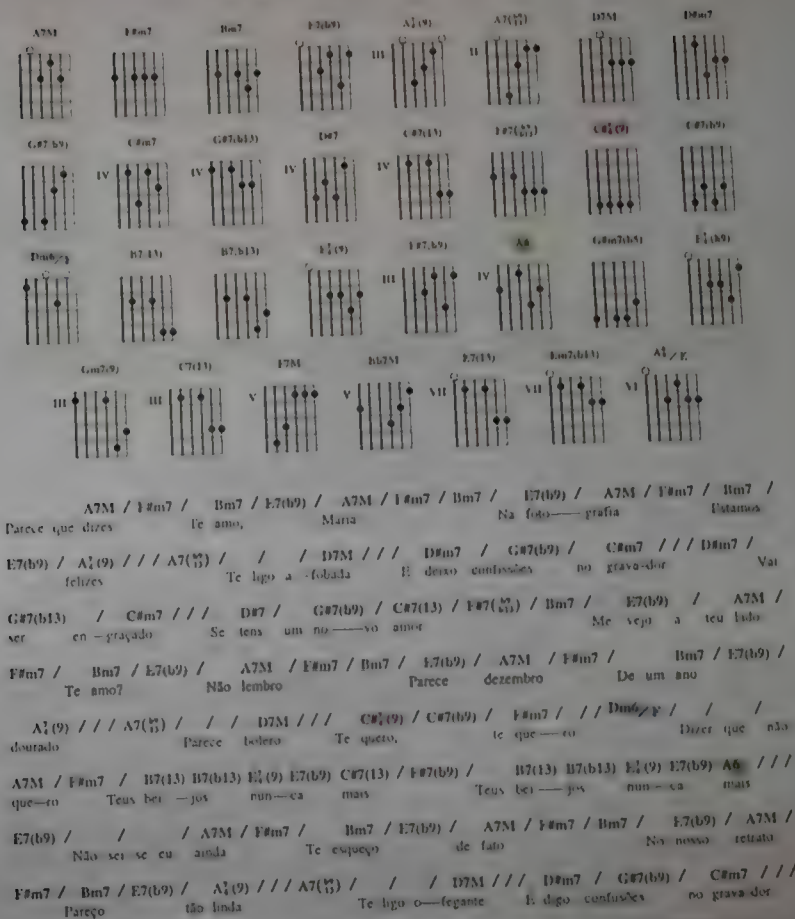 A7M F#m7 Bm7 E7(b9) A7/4(9) A7(b9/13) D7M D#m7
III II
G#7(b9) C#m7 G#7(b13) D#7 C#7(13) F#7(b9/b13) C#7/4(9) C#7(b9)
IV IV IV IV
Dm6/F B7(13) B7(b13) E7/4(9) F#7(b9) A6 G#m7(b5) E7/4(b9)
III IV
Gm7(9) C7(13) F7M Bb7M E7(13) Em7(b13) A6/4/E
III III V V VII VII VI
A7M / F#m7 / Bm7 / E7(b9) / A7M / F#m7 / Bm7 / E7(b9) / A7M / F#m7 / Bm7 /
Parece que dizes Te amo, Maria Na foto—grafia Estamos
E7(b9) / A7/4(9) / / / A7(b9/13) / / / D7M / / / D#m7 / G#7(b9) / C#m7 / / / D#m7 /
felizes Te ligo a-fobada E deixo confissões no grava-dor Vai
G#7(b13) / C#m7 / / / D#7 / G#7(b9) / C#7(13) / F#7(b9/b13) / Bm7 / E7(b9) / A7M /
ser en-graçado Se tens um no—vo amor Me vejo a teu lado
F#m7 / Bm7 / E7(b9) / A7M / F#m7 / Bm7 / E7(b9) / A7M / F#m7 / Bm7 / E7(b9) /
Te amo? Não lembro Parece dezembro De um ano
A7/4(9) / / / A7(b9/13) / / / D7M / / / C#7/4(9) / C#7(b9) / F#m7 / / / Dm6/F / / /
dourado Parece bolero Te quero, te que—ro Dizer que não
A7M / F#m7 / B7(13) B7(b13) E7/4(9) E7(b9) C#7(13) / F#7(b9) / B7(13) B7(b13) E7/4(9) E7(b9) A6 / / /
que—ro Teus bei—jos nun—ca mais Teus bei—jos nun—ca mais
E7(b9) / / / A7M / F#m7 / Bm7 / E7(b9) / A7M / F#m7 / Bm7 / E7(b9) / A7M /
Não sei se eu ainda Te esqueço de fato No nosso retrato
F#m7 / Bm7 / E7(b9) / A7/4(9) / / / A7(b9/13) / / / D7M / / / D#m7 / G#7(b9) / C#m7 / / /
Pareço tão linda Te ligo o—fegante E digo confusões no grava-dor